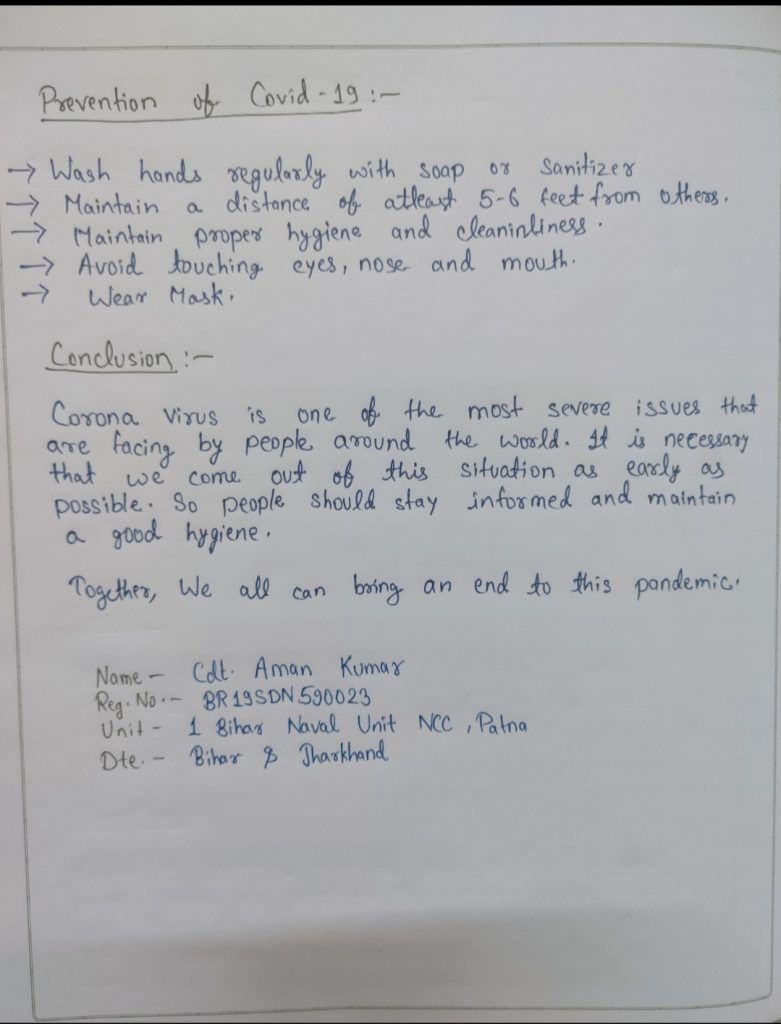 Prevention of Covid-19 :-
→ Wash hands regularly with soap or Sanitizer
→ Maintain a distance of atleast 5-6 feet from others.
→ Maintain proper hygiene and cleaninliness.
→ Avoid touching eyes, nose and mouth.
→ Wear Mask.
Conclusion :-
Corona virus is one of the most severe issues that
are facing by people around the world. It is necessary
that we come out of this situation as early as
possible. So people should stay informed and maintain
a good hygiene.
Together, We all can bring an end to this pandemic.
Name - Cdt. Aman Kumar
Reg. No. - BR19SDN590023
Unit - 1 Bihar Naval Unit NCC, Patna
Dte. - Bihar & Jharkhand